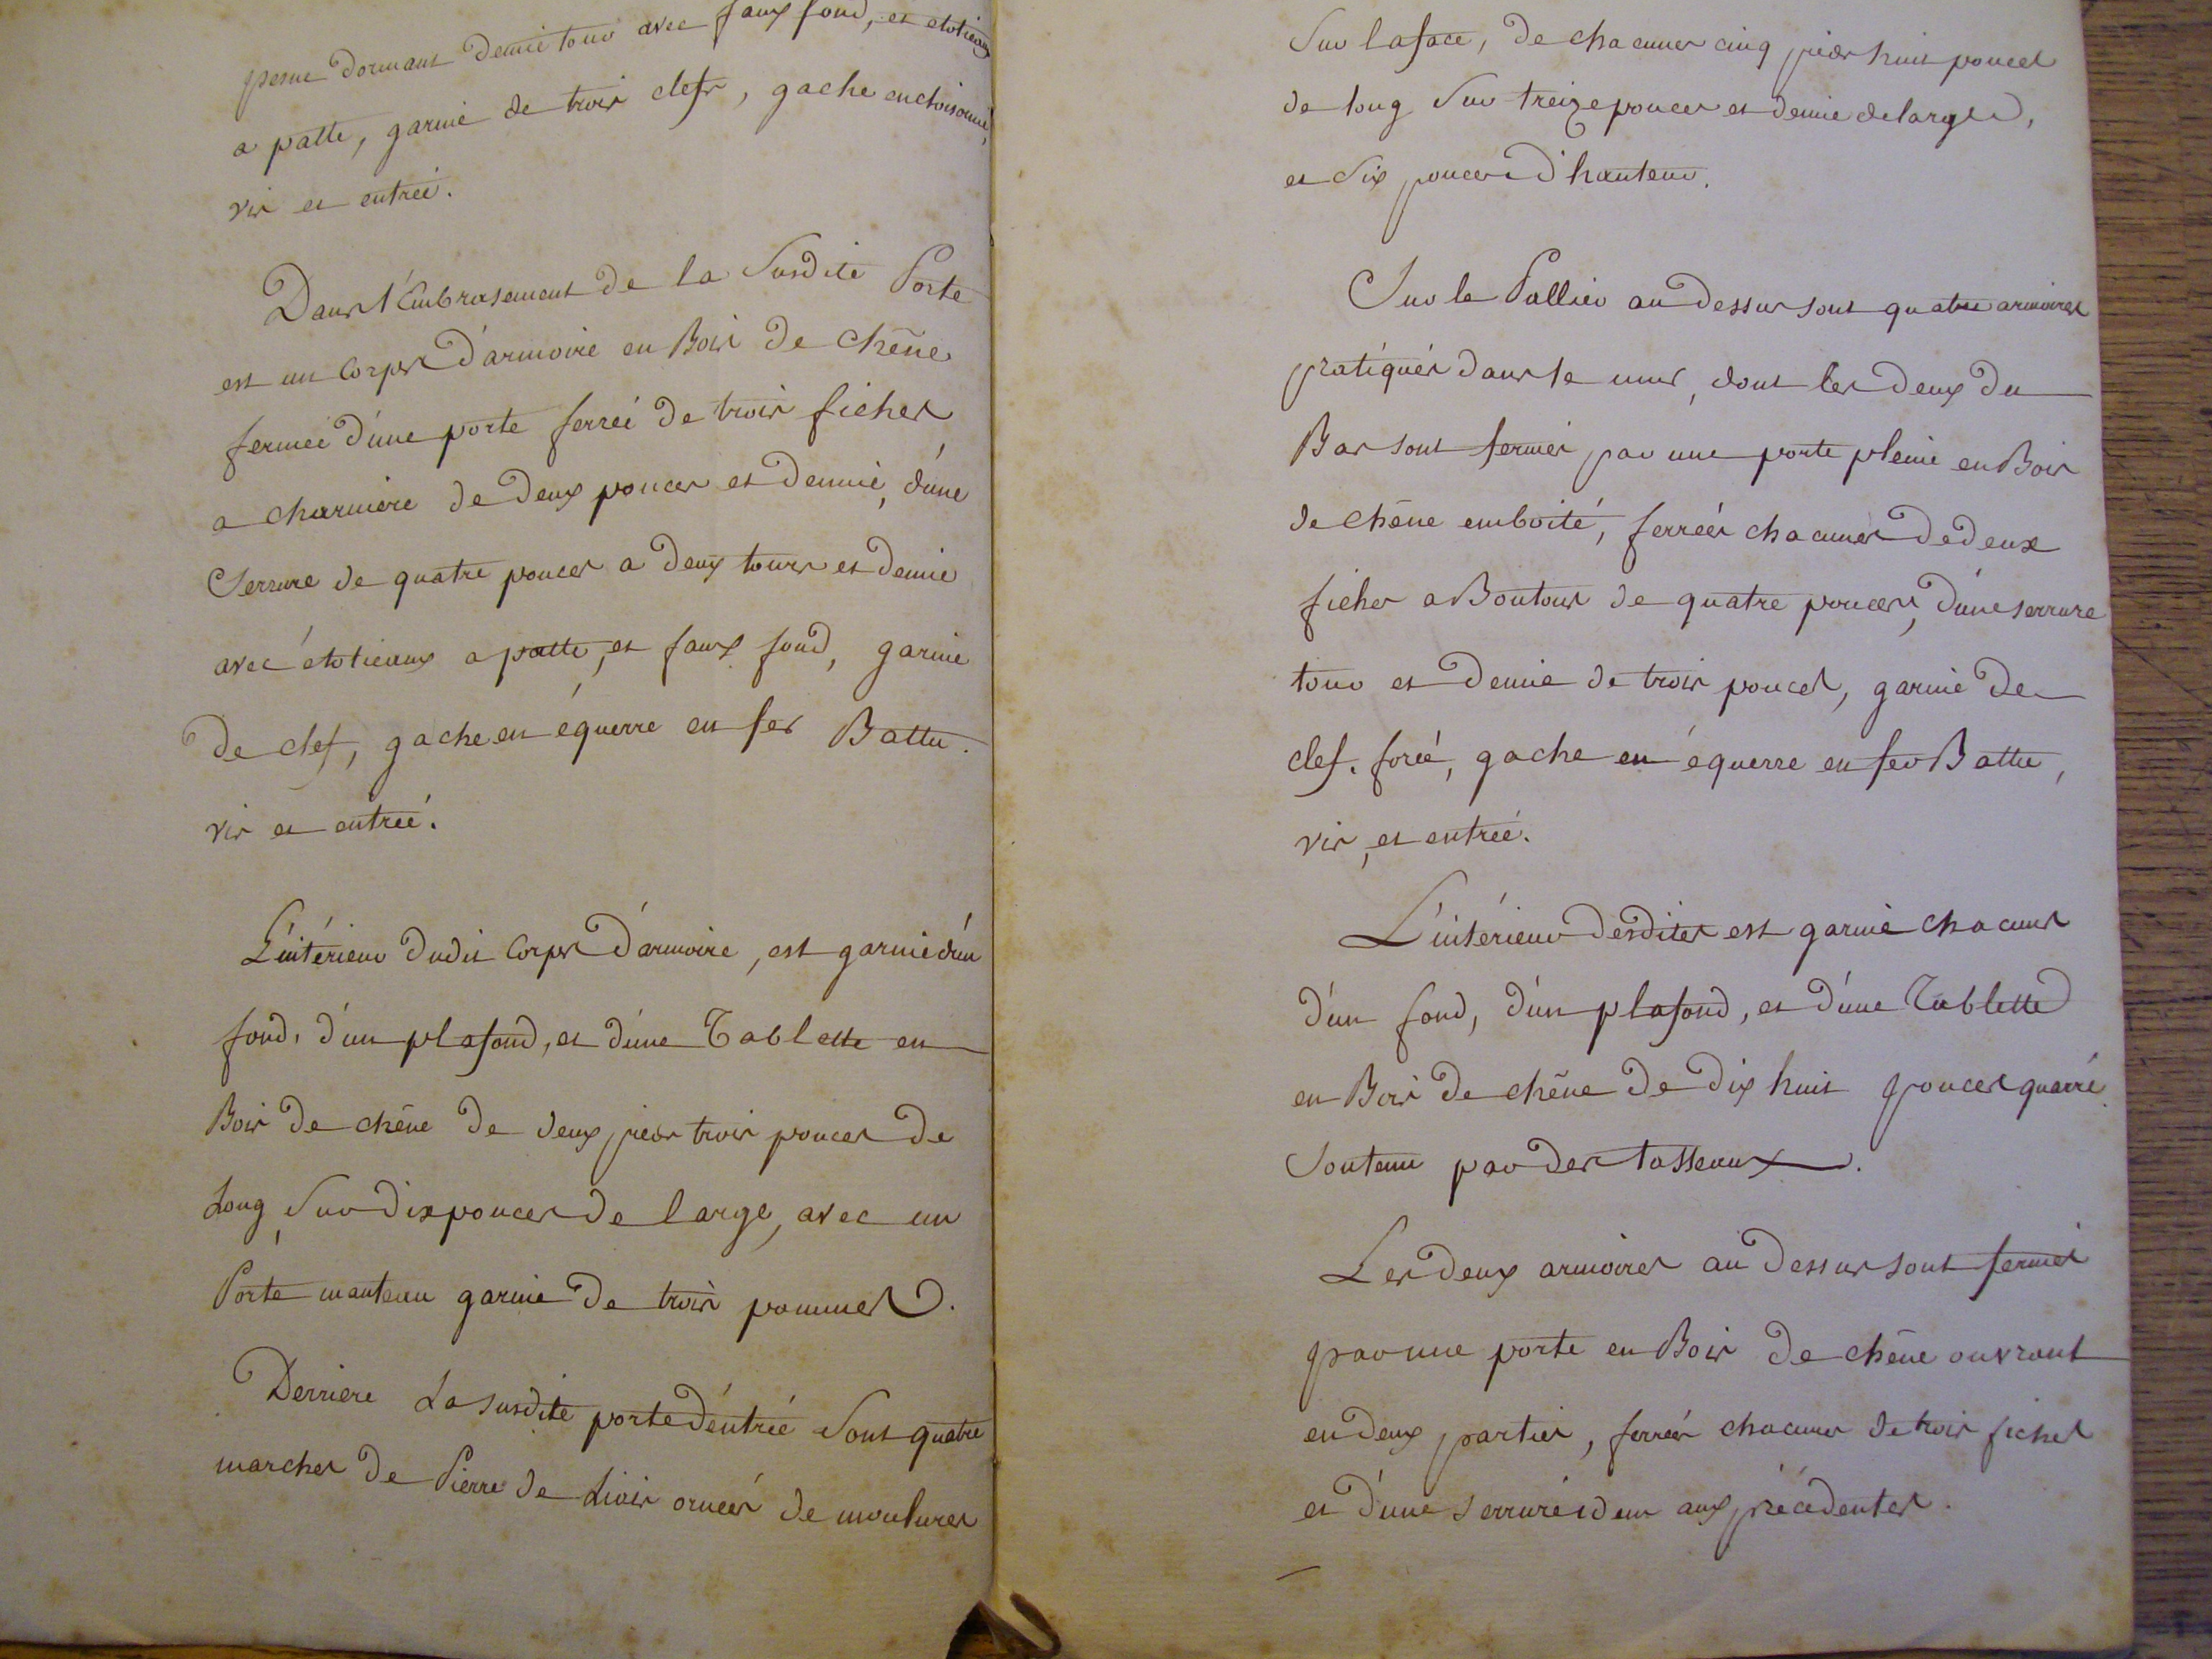 pesne dormant demie tour avec faux fond, et etotieaux
a patte, garnie de trois clefs, gache encloisonné,
vis et entreé.
Dans l'Embrasement de la Susdite Porte
est un Corps d'armoire en Bois de Chêne
fermeé d'une porte ferreé de trois fiches
a charniere de deux pouces et demie, d'une
Serrure de quatre pouces a deux tours et demie
avec étotieaux a patte, et faux fond, garnie
de clef, gache en équerre en fer Battu.
vis et entreé.
L'intérieur dudit Corps d'armoire, est garnie d'un
fond, d'un plafond, et d'une Tablette en
Bois de chêne de deux pieds trois pouces de
Long, Sur dix pouces de large, avec un
Porte manteau garnie de trois pommes.
Derriere La susdite porte d'éntreé Sont quatre
marches de Pierre de Liais orneés de moulures
Sur la face, de chacunes cinq pieds huit pouces
de long Sur treize pouces et demie de larges,
et Six pouces d'hauteur.
Sur le Pallier au dessus sont quatre armoires
pratiqués dans le mur, dont les deux du
Bas sont fermés par une porte pleine en Bois
de chêne emboité, ferreés chacunes de deux
fiches a Boutons de quatre pouces, d'une serrure
tour et demie de trois pouces, garnie de
clef, foreé, gache en équerre en fer Battu,
vis, et entreé.
L'intérieur desdites est garnie chacunes
d'un fond, d'un plafond, et d'une Tablette
en Bois de chêne de dix huit pouces quarré
Soutenu par des tasseaux.
Les deux armoires au dessus sont fermés
par une porte en Bois de chêne ouvrant
en deux parties, ferreés chacunes de trois fiches
et d'une serrure idem aux précédentes.